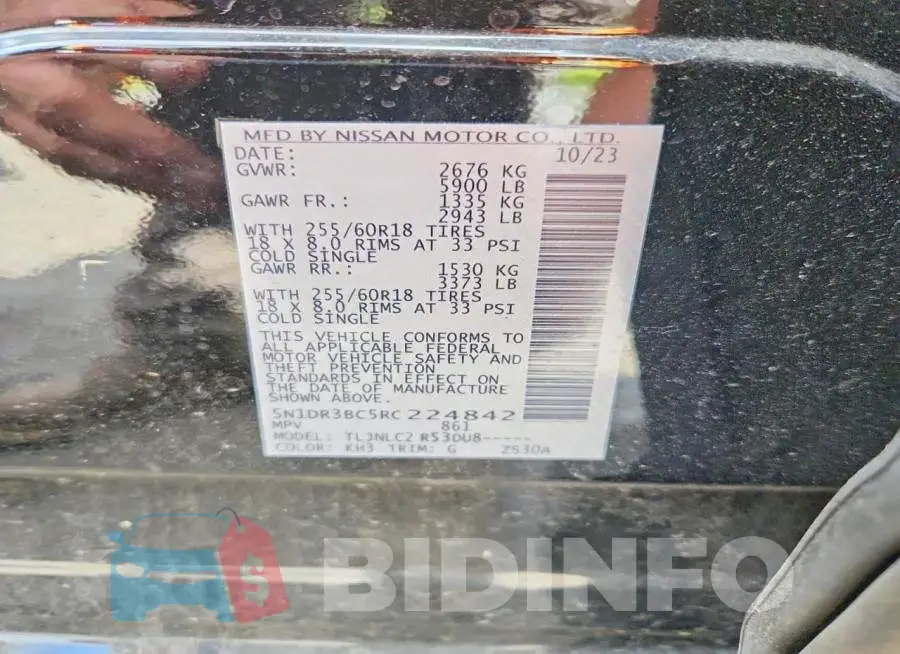 MFD BY NISSAN MOTOR CO., LTD.
DATE: 10/23
GVWR: 2676 KG
5900 LB
GAWR FR.: 1335 KG
2943 LB
WITH 255/60R18 TIRES
18 X 8.0 RIMS AT 33 PSI
COLD SINGLE
GAWR RR.: 1530 KG
3373 LB
WITH 255/60R18 TIRES
18 X 8.0 RIMS AT 33 PSI
COLD SINGLE
THIS VEHICLE CONFORMS TO
ALL APPLICABLE FEDERAL
MOTOR VEHICLE SAFETY AND
THEFT PREVENTION
STANDARDS IN EFFECT ON
THE DATE OF MANUFACTURE
SHOWN ABOVE.
5N1DR3BC5RC224842
MPV 861
MODEL: TLJNLC2 R53DU8-----
COLOR: KH3 TRIM: G 2530A
BIDINFO